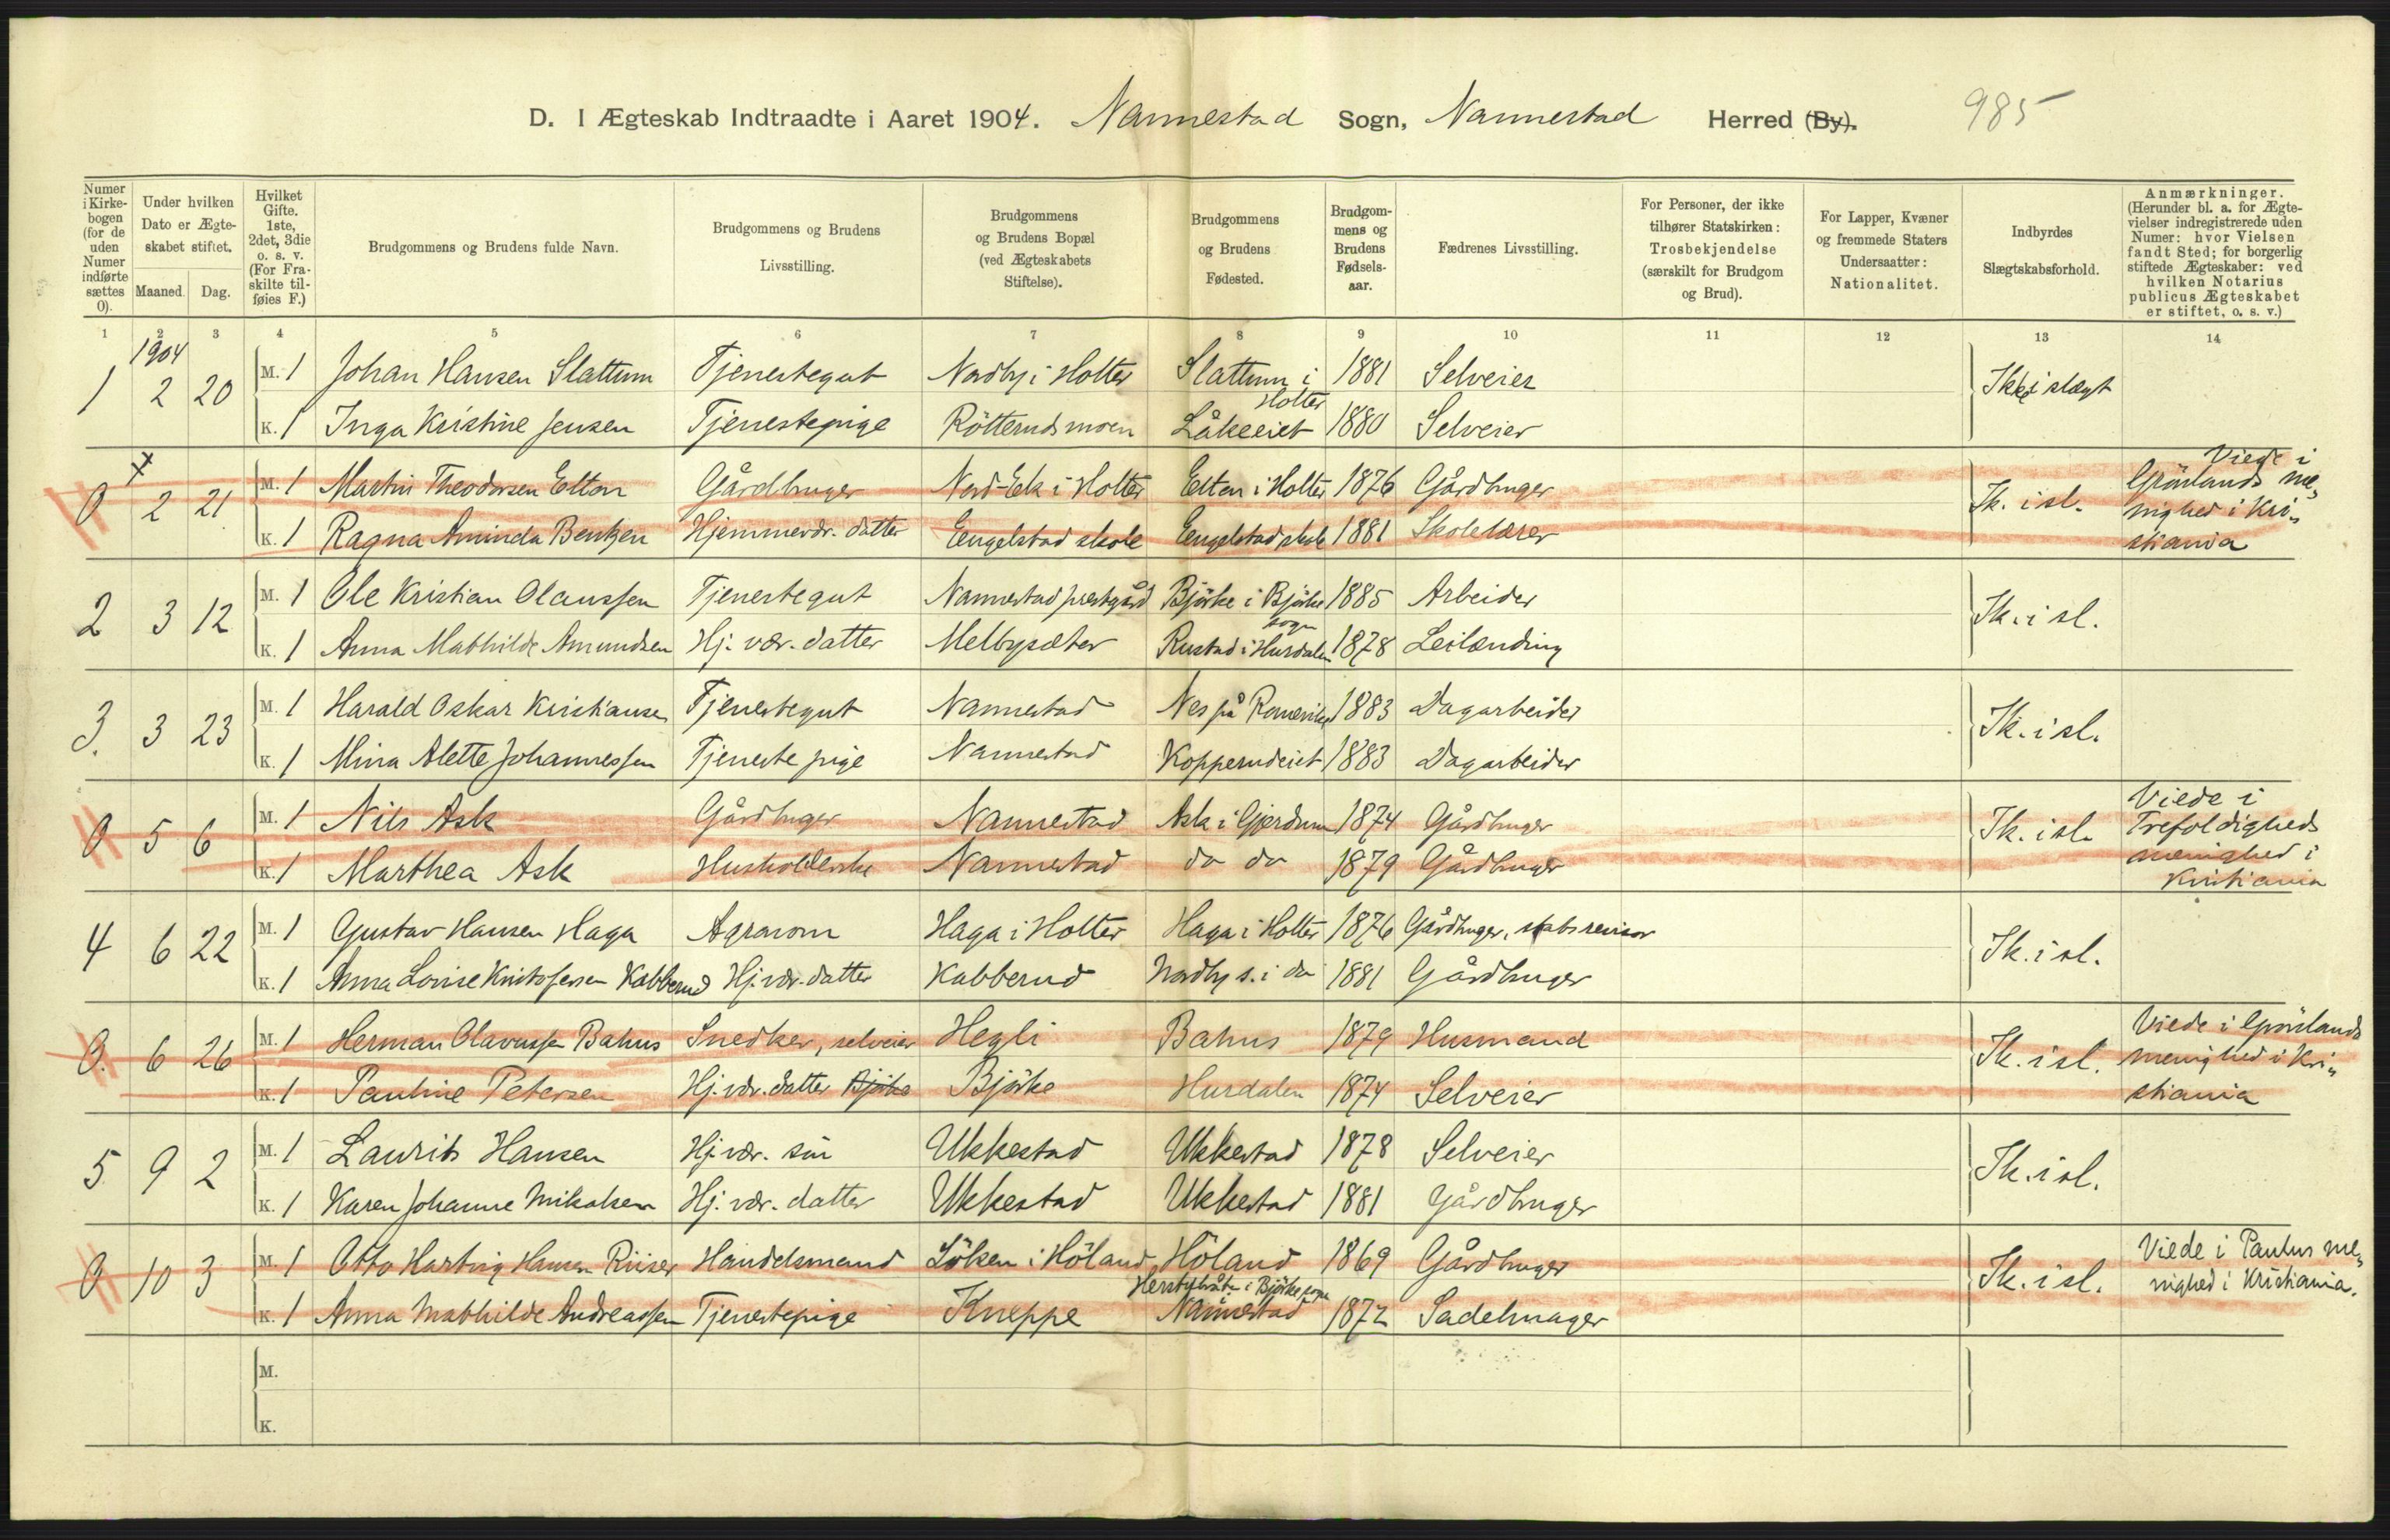 D. I Ægteskab Indtraadte i Aaret 1904. Nannestad Sogn, Nannestad Herred (By). 985
Numer i Kirkebogen (for de uden Numer indførte sættes 0).
Under hvilken Dato er Ægteskabet stiftet.
Maaned. Dag.
Hvilket Gifte. 1ste, 2det, 3die o. s. v. (For Fraskilte tilføies F.)
Brudgommens og Brudens fulde Navn.
Brudgommens og Brudens Livsstilling.
Brudgommens og Brudens Bopæl (ved Ægteskabets Stiftelse).
Brudgommens og Brudens Fødested.
Brudgommens og Brudens Fødselsaar.
Fædrenes Livsstilling.
For Personer, der ikke tilhører Statskirken: Trosbekjendelse (særskilt for Brudgom og Brud).
For Lapper, Kvæner og fremmede Staters Undersaatter: Nationalitet.
Indbyrdes Slægtskabsforhold.
Anmærkninger. (Herunder bl. a. for Ægtevielser indregistrerede uden Numer: hvor Vielsen fandt Sted; for borgerlig stiftede Ægteskaber: ved hvilken Notarius publicus Ægteskabet er stiftet, o. s. v.)
1 2 3 4 5 6 7 8 9 10 11 12 13 14
1904
1 2 20 M. 1 Johan Hansen Slattum Tjenestegut Nordby i Holter Slattum i Holter 1881 Selveier Ikke i slægt
K. 1 Inga Kristine Jensen Tjenestepige Rötterudsmoen Låkeeiet 1880 Selveier
0 2 21 M. 1 Martin Theodorsen Elton Gårdbruger Nord-Ek i Holter Elton i Holter 1876 Gårdbruger Ik. i sl. Viede i Grönlands menighed i Kristiania
K. 1 Ragna Aminda Bentzen Hjemmevær. datter Eengelstad skole Eengelstad skole 1881 Skolelærer
2 3 12 M. 1 Ole Kristian Olaussen Tjenestegut Nannestad prestgård Björke i Björke sogn 1885 Arbeider Ik. i sl.
K. 1 Anna Mathilde Amundsen Hj. vær. datter Melbysæter Rustad i Hurdalen 1878 Leilænding
3. 3 23 M. 1 Harald Oskar Kristiansen Tjenestegut Nannestad Nes på Romerike 1883 Dagarbeider Ik. i sl.
K. 1 Mina Alette Johannessen Tjenestepige Nannestad Kopperudeiet 1883 Dagarbeider
0 5 6 M. 1 Nils Ask Gårdbruger Nannestad Ask i Gjerdrum 1874 Gårdbruger Ik. i sl. Viede i Trefoldigheds menighed i Kristiania
K. 1 Marthea Ask Husholderske Nannestad do do 1879 Gårdbruger
4 6 22 M. 1 Gustav Hansen Haga Agronom Haga i Holter Haga i Holter 1876 Gårdbruger, statsrevisor Ik. i sl.
K. 1 Anna Lovise Kristofersen Kabberud Hj. vær. datter Kabberud Nordby s. i do 1881 Gårdbruger
0. 6 26 M. 1 Herman Olavussen Bahus Snedker, selveier Hegli Bahus 1879 Husmand Ik. i sl. Viede i Grönlands menighed i Kristiania
K. 1 Pauline Petersen Hj. vær. datter Björke Björke Hurdalen 1874 Selveier
5 9 2 M. 1 Laurits Hansen Hj. vær. sön Ukkestad Ukkestad 1878 Selveier Ik. i sl.
K. 1 Karen Johanne Mikalsen Hj. vær. datter Ukkestad Ukkestad 1881 Gårdbruger
0 10 3 M. 1 Otto Hartvig Hansen Riiser Handelsmand Löken i Höland Höland 1869 Gårdbruger Ik. i sl. Viede i Paulus menighed i Kristiania.
K. 1 Anna Mathilde Andreassen Tjenestepige Kneppe i Björke sogn Nannestad 1872 Sadelmager
M.
K.